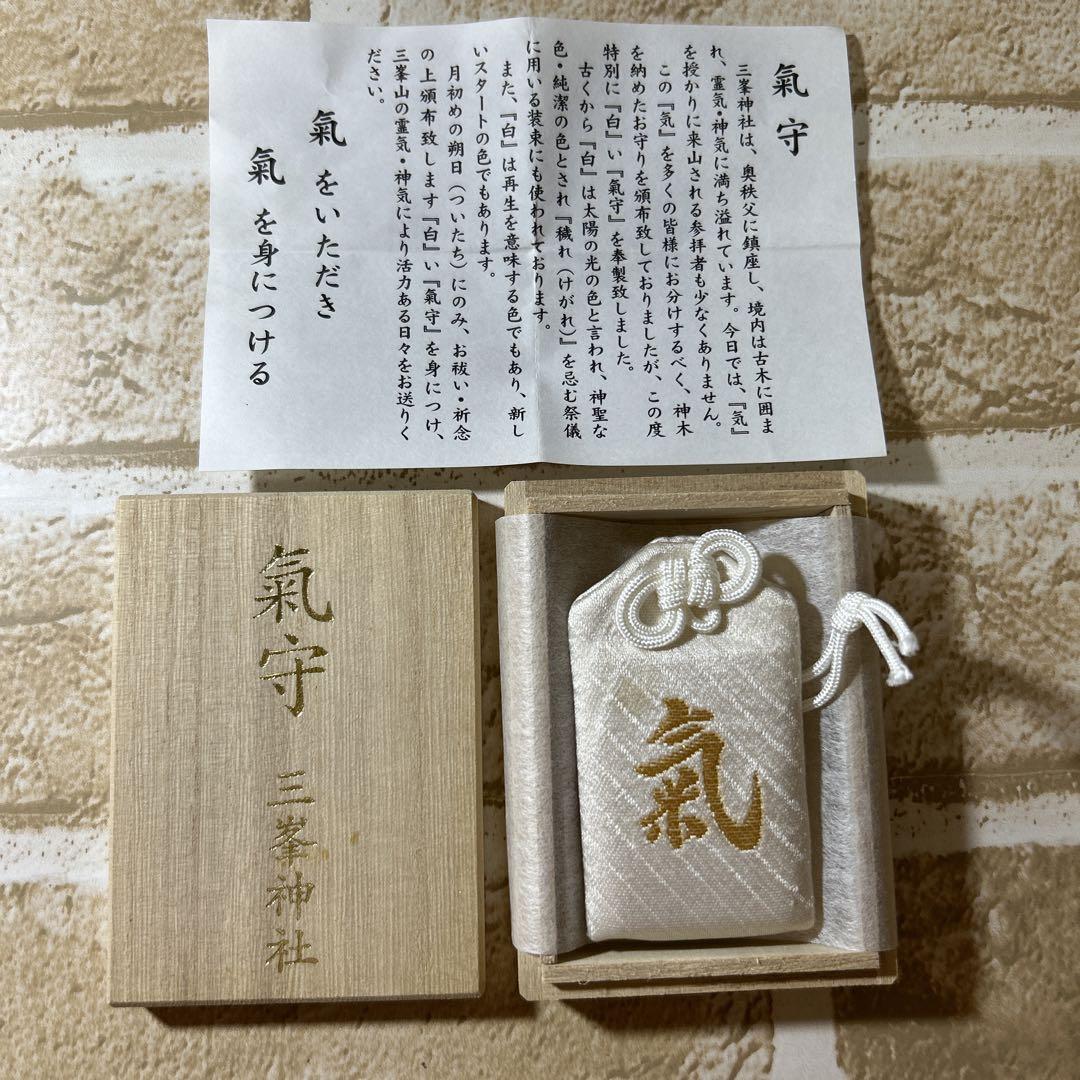 氣守
三峯神社は、奥秩父に鎮座し、境内は古木に囲ま
れ、霊気・神気に満ち溢れています。今日では、『気』
を授かりに来山される参拝者も少なくありません。
この『気』を多くの皆様にお分けするべく、神木
を納めたお守りを頒布致しておりましたが、この度
特別に『白』い『氣守』を奉製致しました。
古くから『白』は太陽の光の色と言われ、神聖な
色・純潔の色とされ『穢れ（けがれ）』を忌む祭儀
に用いる装束にも使われております。
また、『白』は再生を意味する色でもあり、新し
いスタートの色でもあります。
月初めの朔日（ついたち）にのみ、お祓い・祈念
の上頒布致します『白』い『氣守』を身につけ、
三峯山の霊気・神気により活力ある日々をお送りく
ださい。
氣をいただき
氣を身につける
氣守 三峯神社
氣